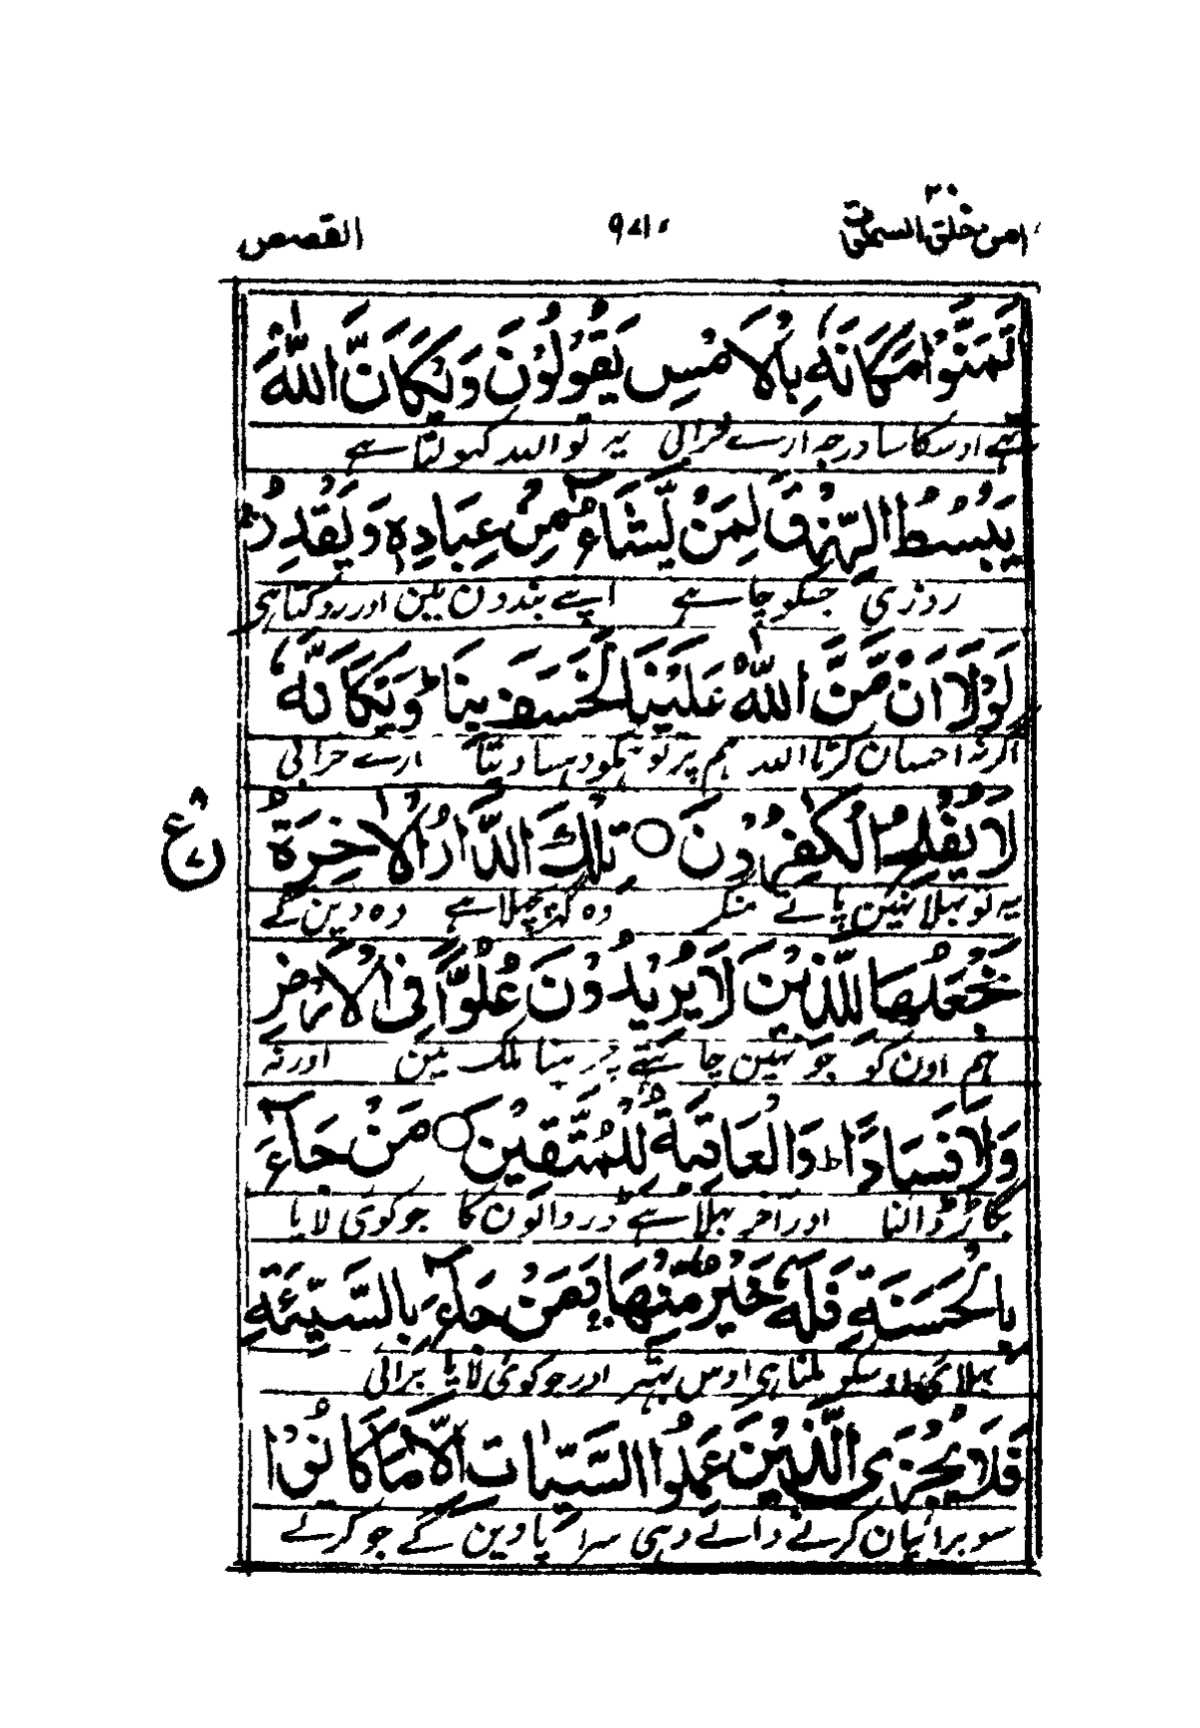 امن خلق السمٰوٰت ۲۰
القصص
تَمَنَّوْا مَكَانَهٗ بِالْاَمْسِ يَقُوْلُوْنَ وَيْكَاَنَّ اللّٰهَ
تھے اوسکا سا درجہ ارے خرابی یہ تو اللہ کھولتا ہے
يَبْسُطُ الرِّزْقَ لِمَنْ يَّشَآءُ مِنْ عِبَادِهٖ وَيَقْدِرُ
روزی جسکو چاہے اپنے بندون مین اور روکتا ہی
لَوْلَآ اَنْ مَّنَّ اللّٰهُ عَلَيْنَا لَخَسَفَ بِنَا ؕ وَيْكَاَنَّهٗ
اگر نہ احسان کرتا اللہ ہم پر تو ہمکو دہسا دیتا ارے خرابی
لَا يُفْلِحُ الْكٰفِرُوْنَ ○ تِلْكَ الدَّارُ الْاٰخِرَةُ
ع
یہ تو بھلا نہین پاتے منکر وہ گھر پچھلا ہے وہ دین گے
نَجْعَلُهَا لِلَّذِيْنَ لَا يُرِيْدُوْنَ عُلُوًّا فِى الْاَرْضِ
ہم اون کو جو نہین چاہتے چڑہنا ملک مین اور نہ
وَلَا فَسَادًا ؕ وَالْعَاقِبَةُ لِلْمُتَّقِيْنَ ○ مَنْ جَآءَ
بگاڑ ڈالنا اور آخر بھلا ہے ڈر والون کا جو کوئی لایا
بِالْحَسَنَةِ فَلَهٗ خَيْرٌ مِّنْهَا ۚ وَمَنْ جَآءَ بِالسَّيِّئَةِ
بھلائی اوسکو ملنا ہی اوس بہتر اور جو کوئی لایا برائی
فَلَا يُجْزَى الَّذِيْنَ عَمِلُوا السَّيِّاٰتِ اِلَّا مَا كَانُوْا
سو برائیان کرنے والے وہی سزا پاوین گے جو کرتے